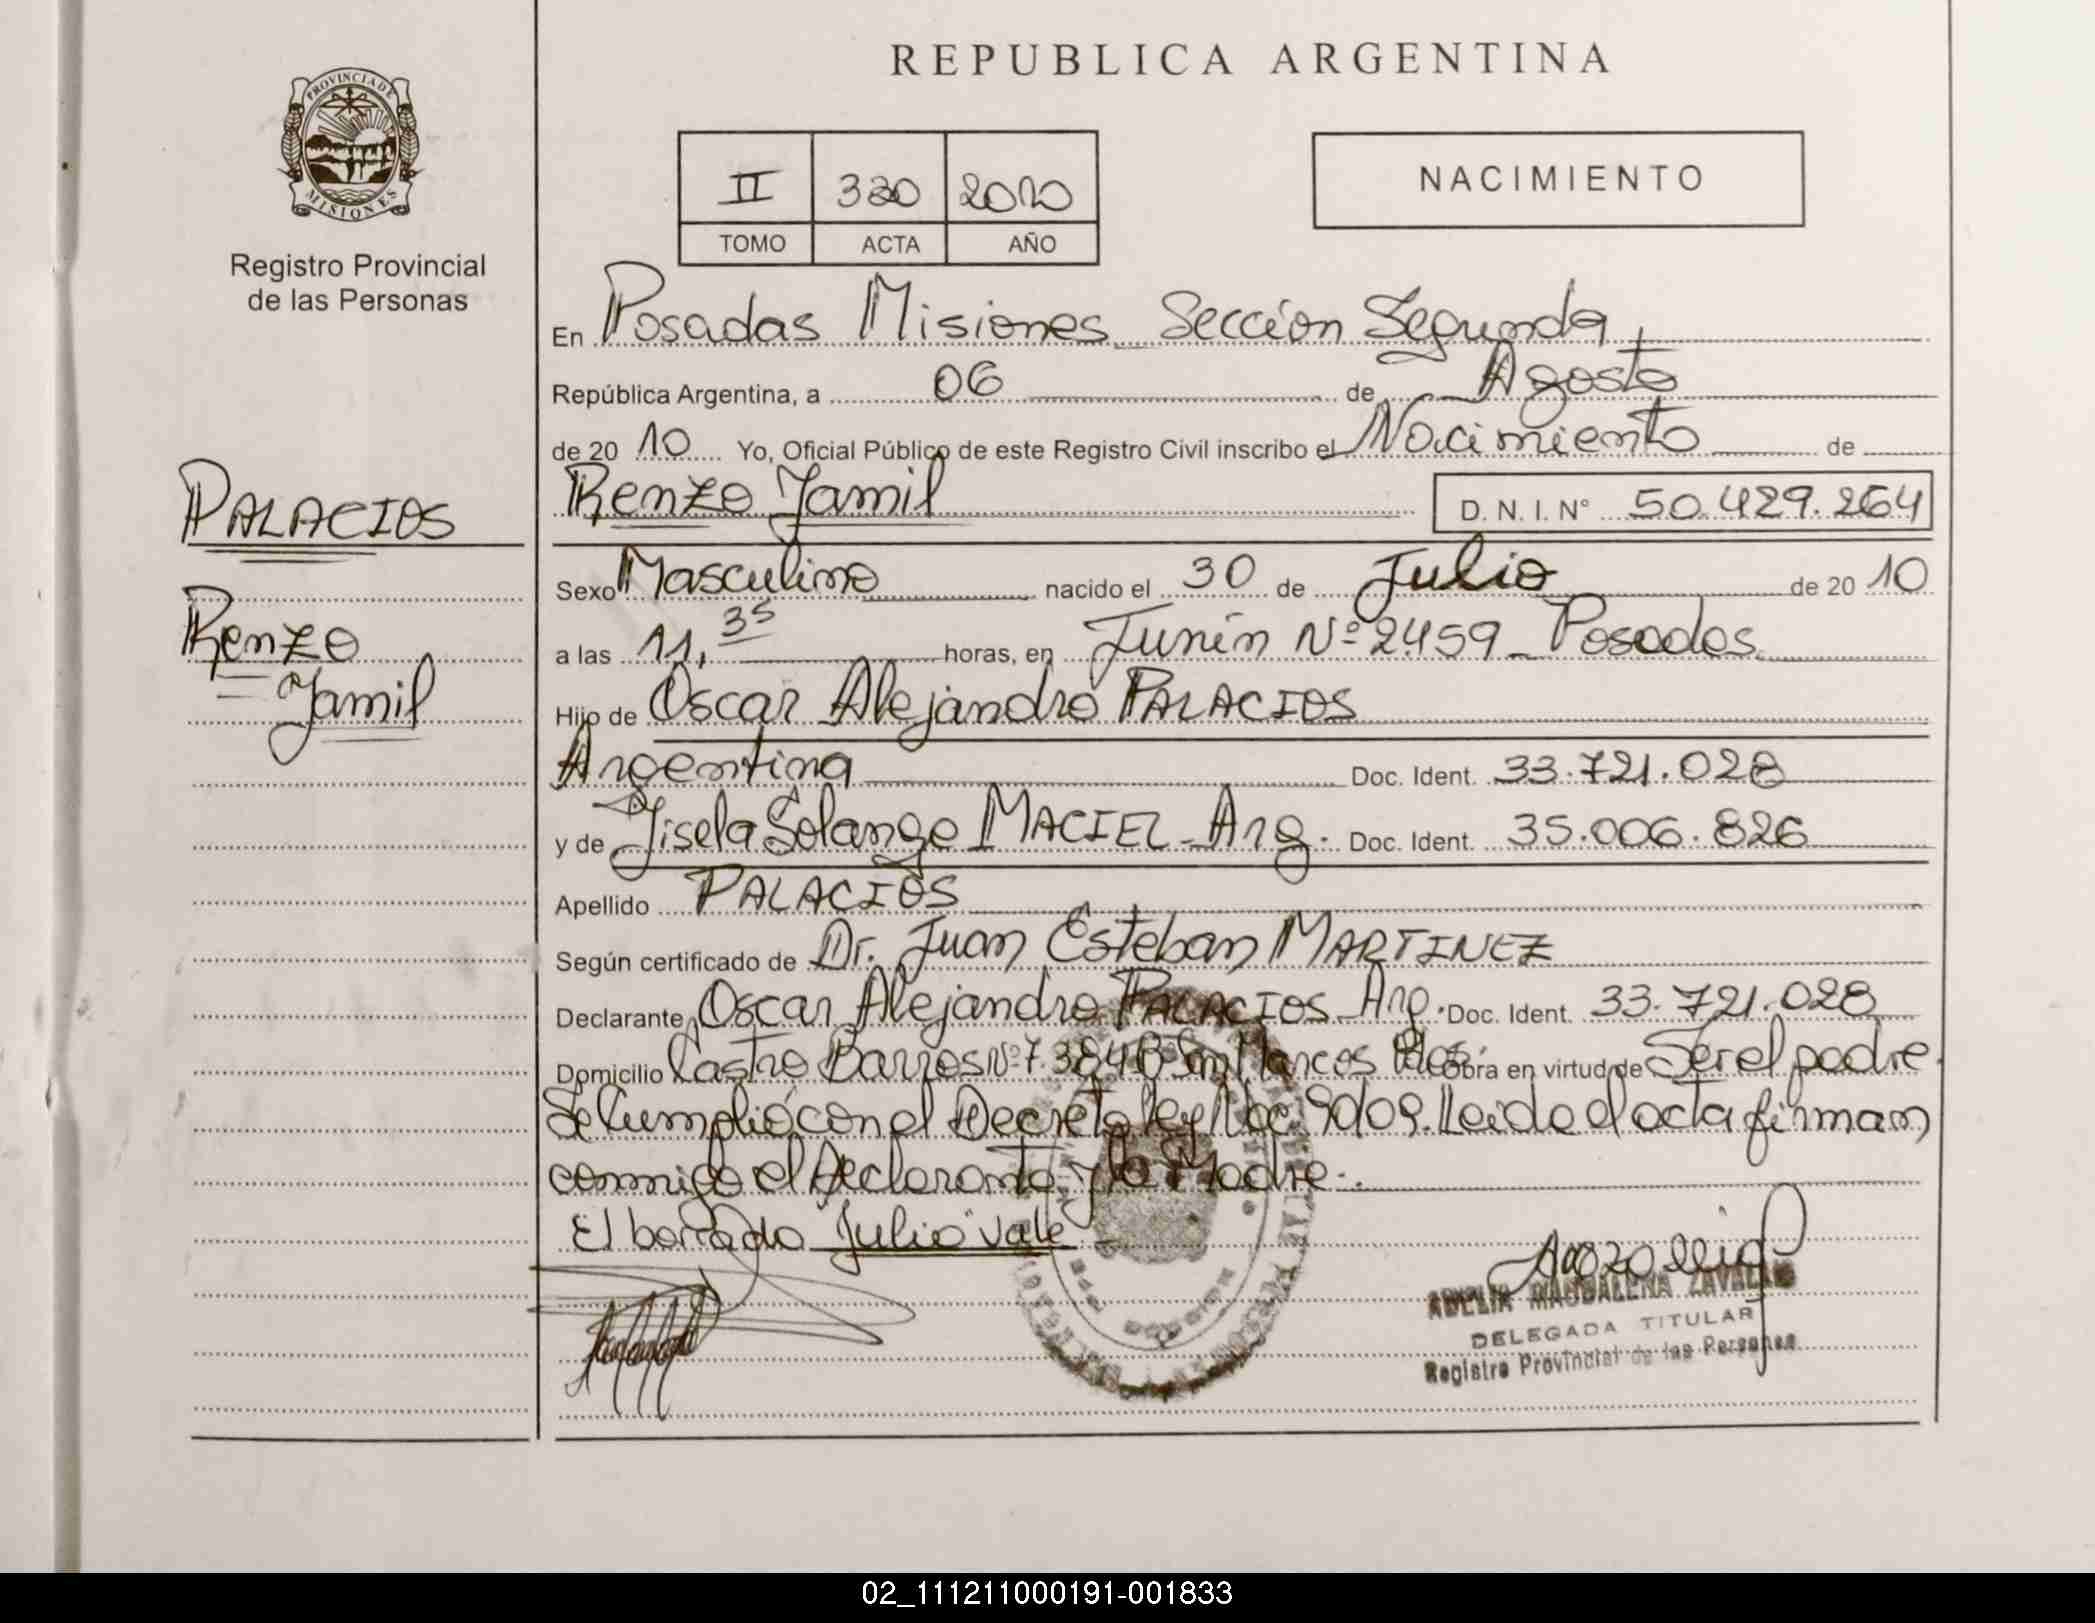 REPUBLICA ARGENTINA
PROVINCIA DE
MISIONES
Registro Provincial
de las Personas
II 320 2010
TOMO ACTA AÑO
NACIMIENTO
En Posadas Misiones Sección Segunda
República Argentina, a 06 de Agosto
de 20 10 Yo, Oficial Público de este Registro Civil inscribo el Nacimiento de
PALACIOS
Renzo Jamil D. N. I. Nº 50.429.264
Sexo Masculino nacido el 30 de Julio de 20 10
Renzo
Jamil
a las 11,35 horas, en Junín Nº 2459 - Posadas
Hijo de Oscar Alejandro PALACIOS
Argentina Doc. Ident. 33.721.028
y de Jisela Solange MACIEL - Arg. Doc. Ident. 35.006.826
Apellido PALACIOS
Según certificado de Dr. Juan Esteban MARTINEZ
Declarante Oscar Alejandro PALACIOS Arg. Doc. Ident. 33.721.028
Domicilio Castro Barros Nº 7384 Bº San Marcos Pdas Obra en virtud de Ser el padre.
Se Cumplió con el Decreto ley Nac. 9009. Leido el acta firman
conmigo el Declarante y la Madre.
El borrado "Julio" vale
ADELIA MAGDALENA
DELEGADA TITULAR
Registro Provincial de las Personas
02_111211000191-001833